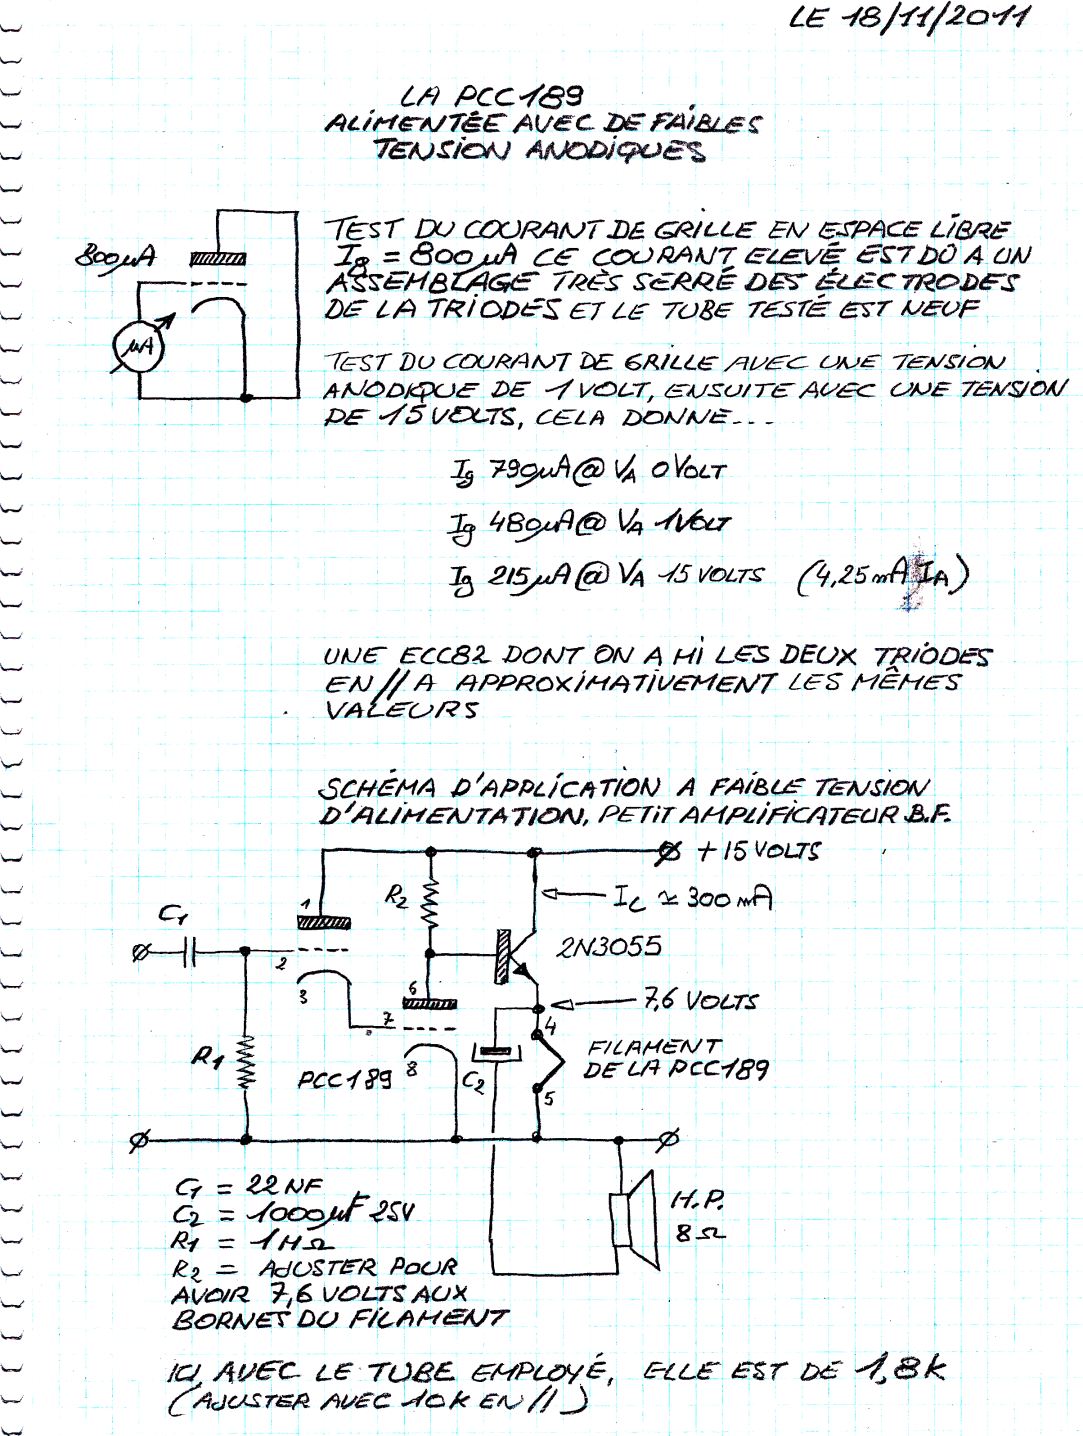 LE 18/11/2011
LA PCC189
ALIMENTÉE AVEC DE FAIBLES
TENSION ANODIQUES
800µA
µA
TEST DU COURANT DE GRILLE EN ESPACE LIBRE
Ig = 800µA CE COURANT ELEVÉ EST DÛ A UN
ASSEMBLAGE TRÈS SERRÉ DES ÉLECTRODES
DE LA TRIODES ET LE TUBE TESTÉ EST NEUF
TEST DU COURANT DE GRILLE AVEC UNE TENSION
ANODIQUE DE 1 VOLT, ENSUITE AVEC UNE TENSION
DE 15 VOLTS, CELA DONNE...
Ig 790µA @ VA 0 VOLT
Ig 480µA @ VA 1 VOLT
Ig 215µA @ VA 15 VOLTS (4,25 mA IA)
UNE ECC82 DONT ON A MI LES DEUX TRIODES
EN // A APPROXIMATIVEMENT LES MÊMES
VALEURS
SCHÉMA D'APPLICATION A FAIBLE TENSION
D'ALIMENTATION, PETIT AMPLIFICATEUR B.F.
+ 15 VOLTS
R2
IC ≃ 300 mA
1
C1
2N3055
2
3
6
7,6 VOLTS
7
4
R1
PCC189
8
C2
FILAMENT
DE LA PCC189
5
C1 = 22 NF
C2 = 1000µF 25V
R1 = 1MΩ
R2 = AJUSTER POUR
AVOIR 7,6 VOLTS AUX
BORNET DU FILAMENT
H.P.
8Ω
ICI, AVEC LE TUBE EMPLOYÉ, ELLE EST DE 1,8K
(AJUSTER AVEC 10K EN //)